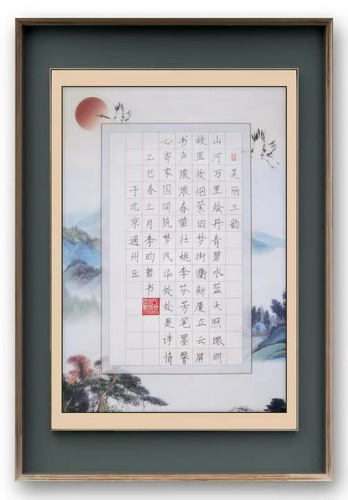 美丽三韵
山河万里绘丹青碧水蓝天照眼明
故里炊烟萦旧梦街衢新厦立云屏
书声琅琅春苗壮桃李芬芳笔墨馨
心寄家国同筑梦风华处处是诗情
乙巳春三月李昀哲书
于北京通州区